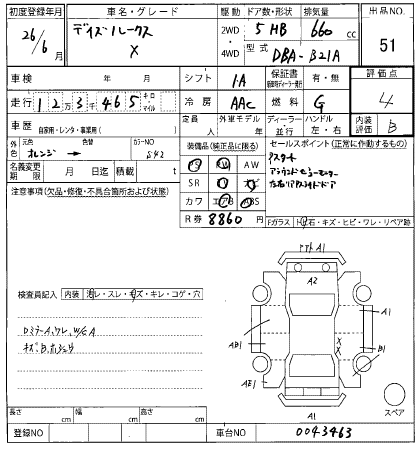 初度登録年月 車名・グレード 駆動 ドア数・形状 排気量 出品NO.
26/6 月 デイズ ルークス X 2WD 4WD 5 HB 660 cc 51
型式 DBA-B21A
車検 年 月 シフト IA 保証書 有・無 評価点
走行 1 2 3千 4 6 5 キロ・マイル 冷房 AAC 燃料 G 4
車歴 自家用・レンタ・事業用( ) 定員 人 外車モデル 年 ディーラー 並行 ハンドル 左・右 内装評価 B
外色 元色 オレンジ 色替 カラーNO
装備品(純正品に限る) セールスポイント(正常に作動するもの)
名義変更期限 月 日迄 積載 t
PS PW AW
SR ナビ
カワ エアB ABS
アラウンドビューモニター
注意事項(欠品・修復・不具合箇所および状態)
R券 8860 円
Fガラス 飛石・キズ・ヒビ・ワレ・リペア跡
検査員記入 内装 汚レ・スレ・キズ・キレ・コゲ・穴
A1
A2
A1
AB1
B1
X
X
AE1
A1
スペア
長さ cm 幅 cm 高さ cm
登録NO 車台NO 0043463